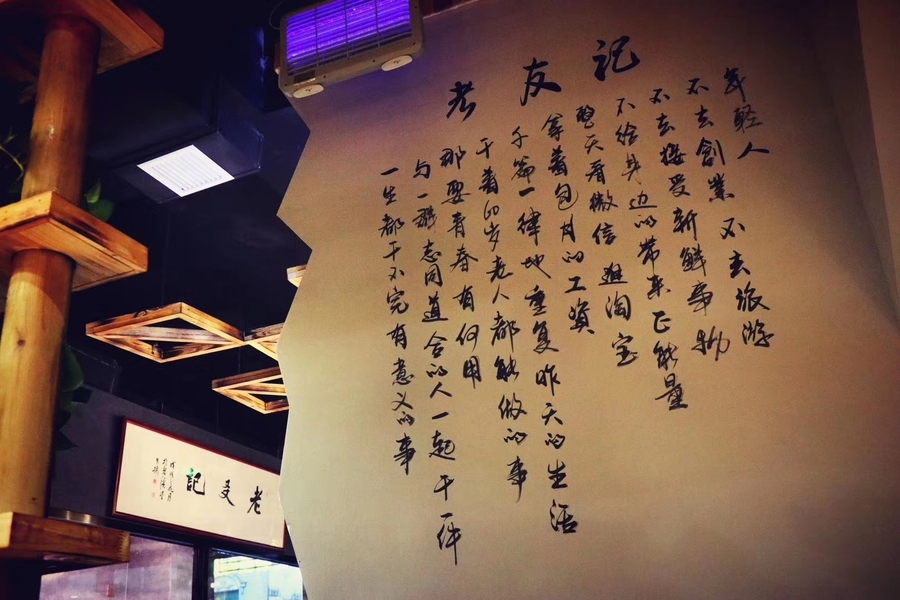 老友記
年輕人
不去創業 不去旅游
不去接受新鮮事物
不给身边的带来正能量
整天看微信 逛淘宝
拿着包月的工資
千篇一律地重复昨天的生活
干着80岁老人都能做的事
那要青春有何用
与一群志同道合的人一起干一件
一生都干不完有意义的事
老友記